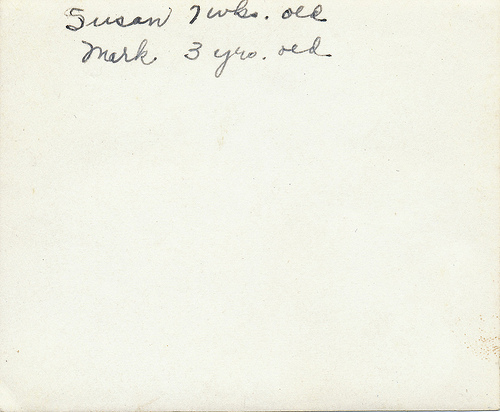 Susan 7 wks. old
Mark 3 yrs. old